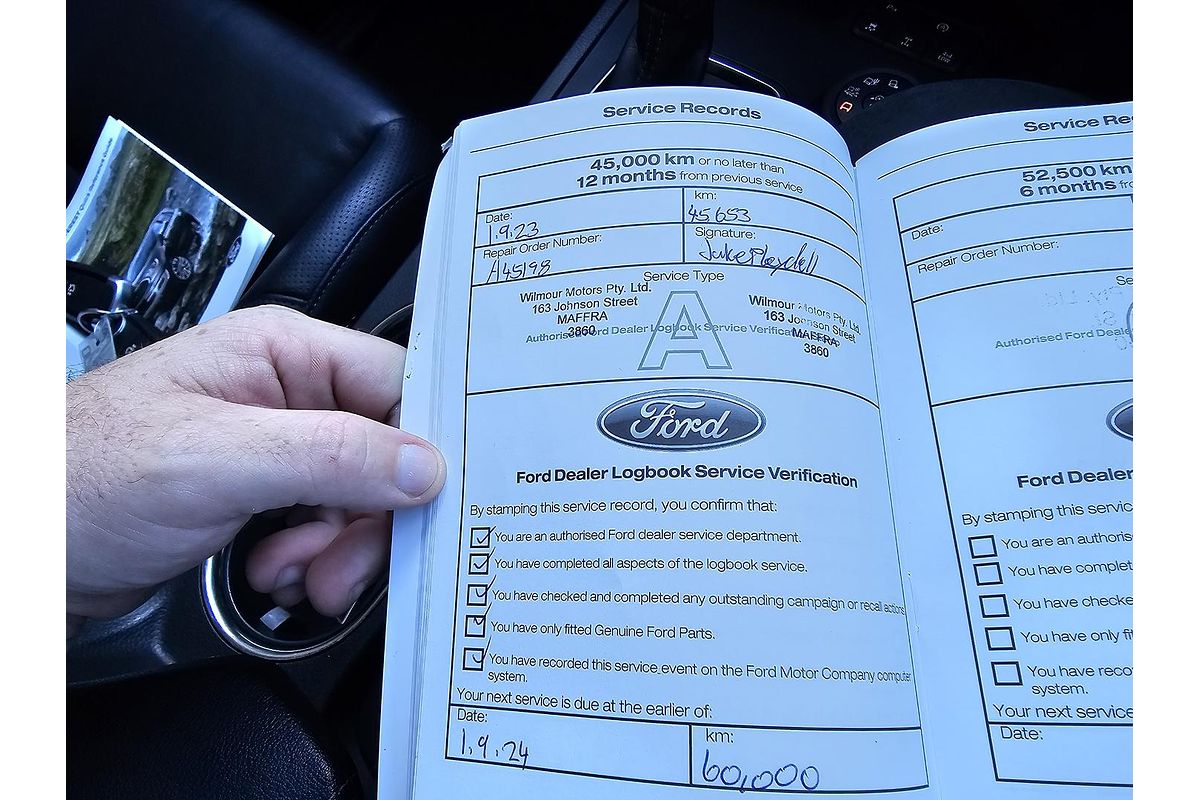 Service Records
45,000 km or no later than
12 months from previous service
Date:
1.9.23
km:
45653
Repair Order Number:
A45198
Signature:
Service Type
A
Wilmour Motors Pty. Ltd.
163 Johnson Street
MAFFRA
3860
Wilmour Motors Pty. Ltd.
163 Johnson Street
MAFFRA
3860
Authorised Ford Dealer Logbook Service Verification
Ford
Ford Dealer Logbook Service Verification
By stamping this service record, you confirm that:
You are an authorised Ford dealer service department.
You have completed all aspects of the logbook service.
You have checked and completed any outstanding campaign or recall actions
You have only fitted Genuine Ford Parts.
You have recorded this service event on the Ford Motor Company computer
system.
Your next service is due at the earlier of:
Date:
1.9.24
km:
60,000
Service Re
52,500 km
6 months
Date:
Repair Order Number:
Authorised Ford Deale
Ford Dealer
By stamping this servic
You are an authoris
You have complet
You have checke
You have only fi
You have reco
system.
Your next service
Date: